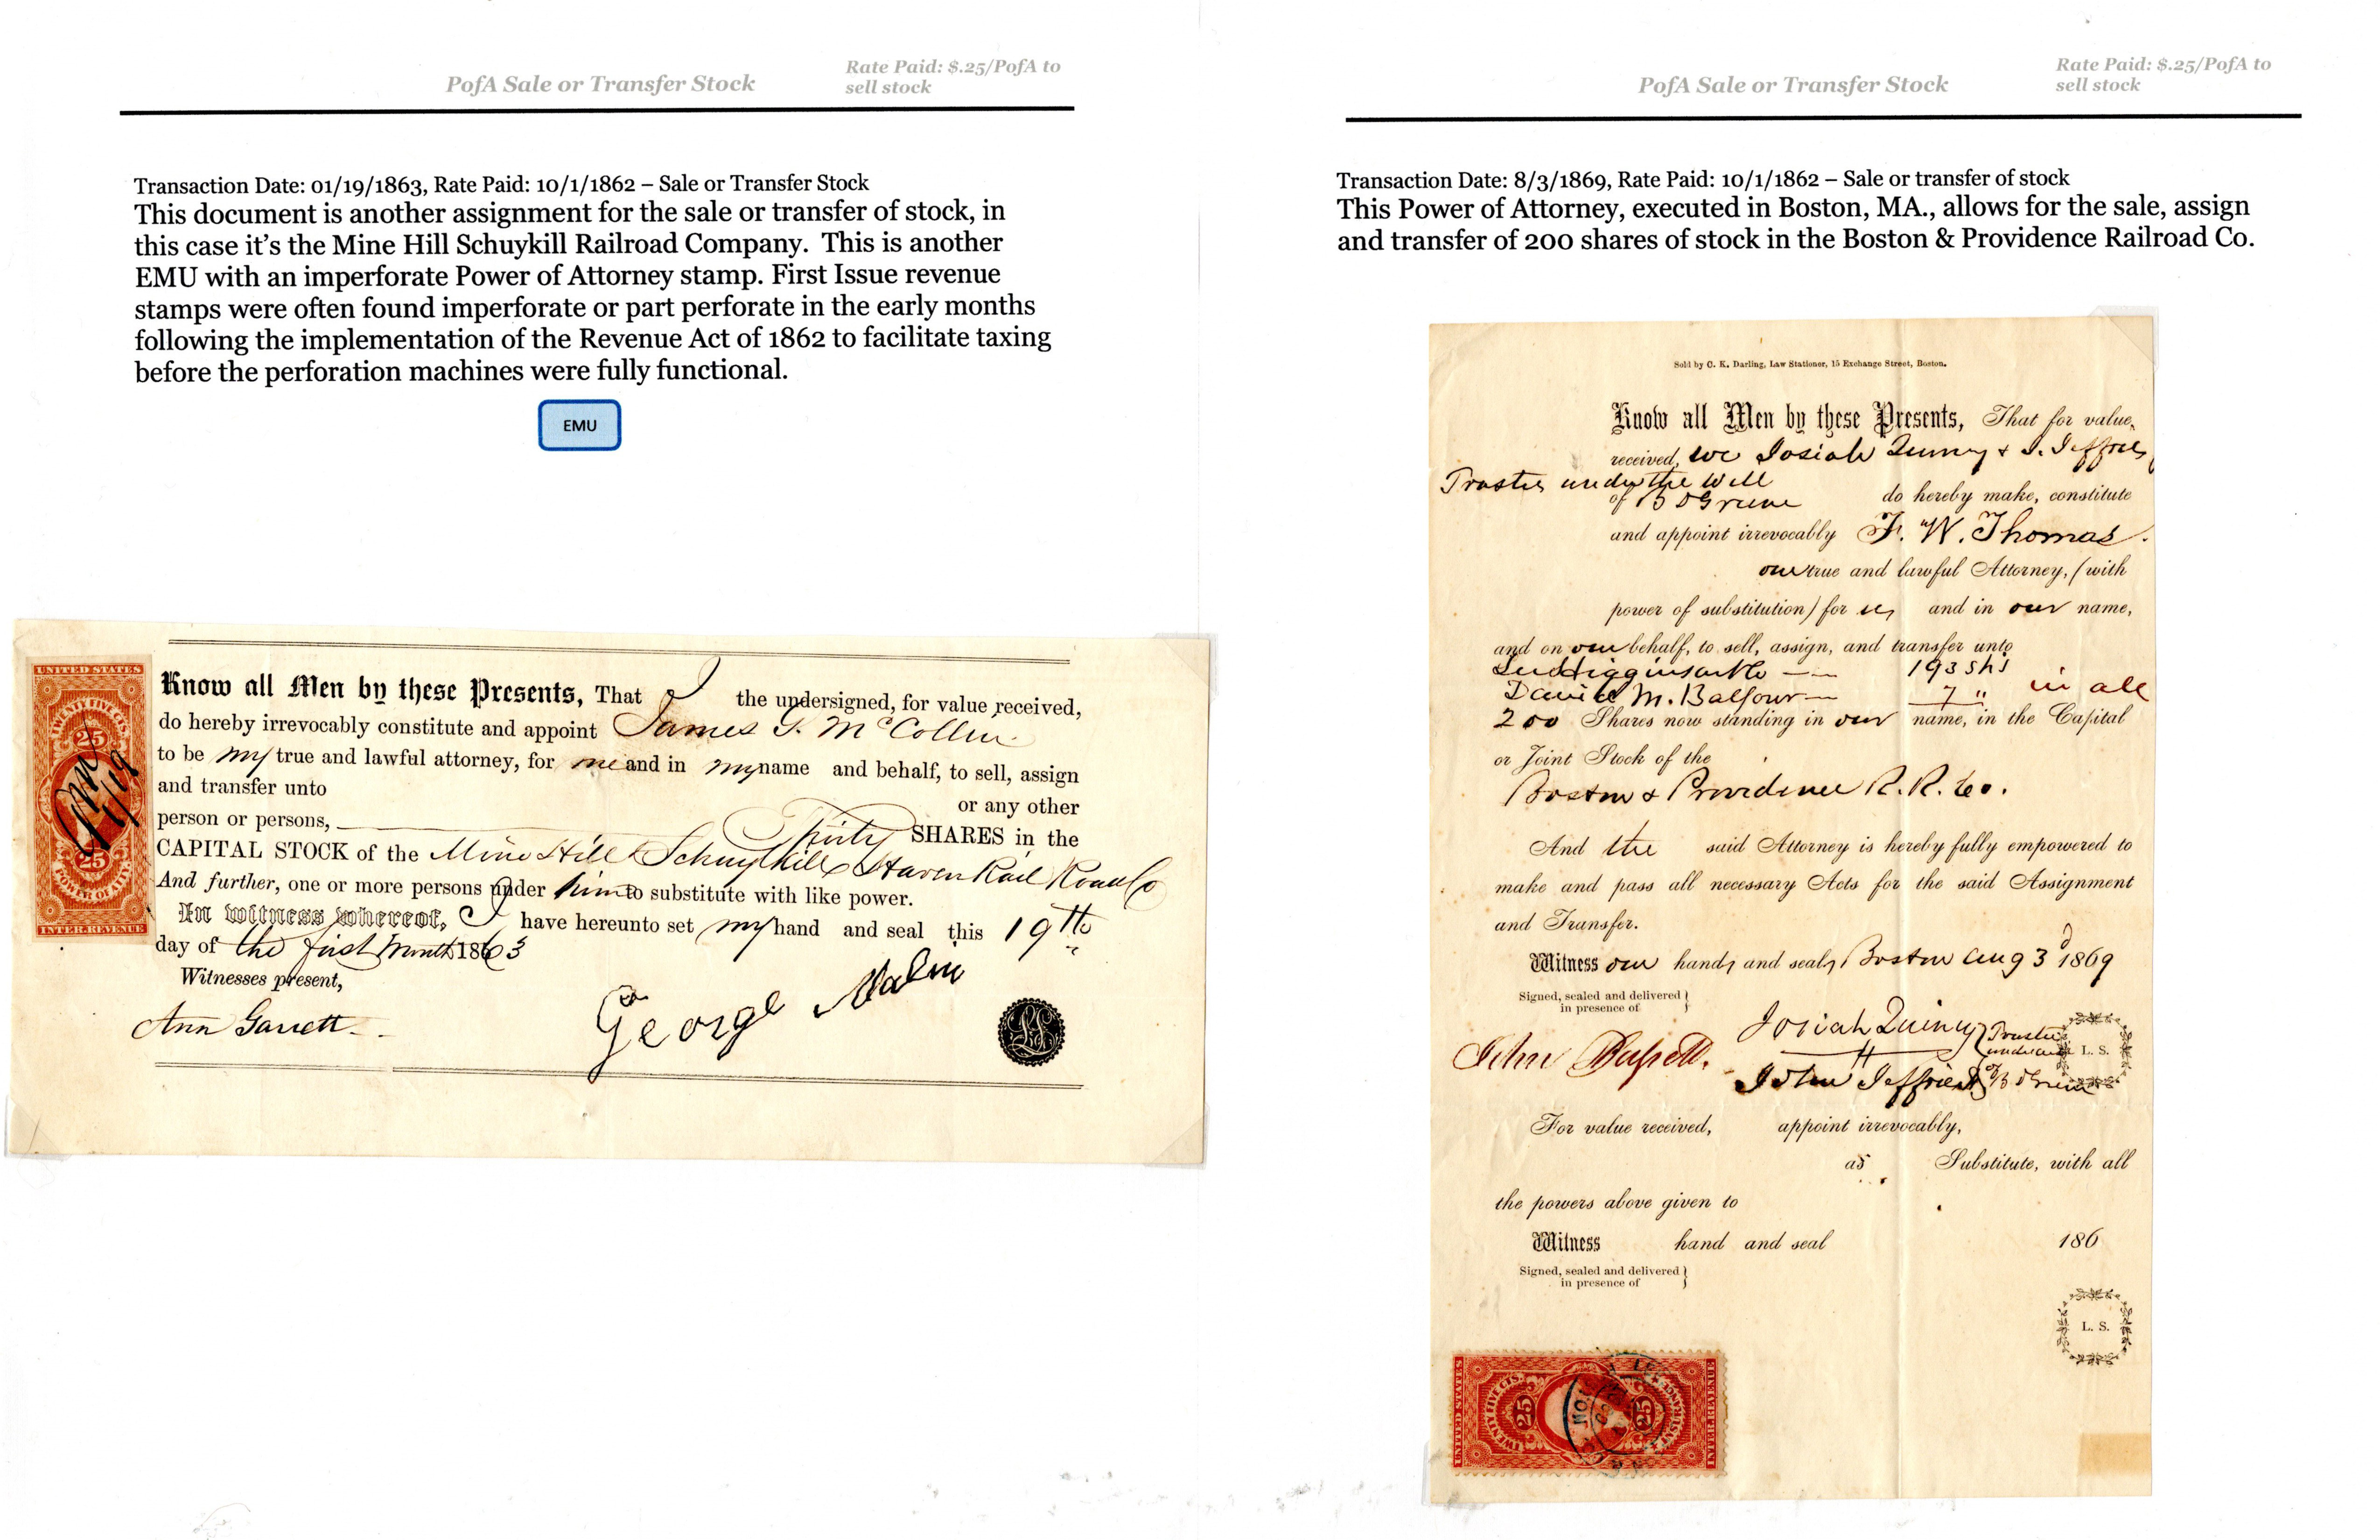 PofA Sale or Transfer Stock
Rate Paid: $.25/PofA to
sell stock
Transaction Date: 01/19/1863, Rate Paid: 10/1/1862 – Sale or Transfer Stock
This document is another assignment for the sale or transfer of stock, in
this case it's the Mine Hill Schuykill Railroad Company. This is another
EMU with an imperforate Power of Attorney stamp. First Issue revenue
stamps were often found imperforate or part perforate in the early months
following the implementation of the Revenue Act of 1862 to facilitate taxing
before the perforation machines were fully functional.
EMU
UNITED STATES
TWENTY FIVE CTS.
25
1/19
25
POWER OF ATT'Y
INTER. REVENUE
Know all Men by these Presents, That I the undersigned, for value received,
do hereby irrevocably constitute and appoint James S. McCollin
to be my true and lawful attorney, for me and in my name and behalf, to sell, assign
and transfer unto
or any other
person or persons, Thirty SHARES in the
CAPITAL STOCK of the Mine Hill & Schuylkill Haven Rail Road Co
And further, one or more persons under him to substitute with like power.
In witness whereof, I have hereunto set my hand and seal this 19th
day of the first month 1863
Witnesses present,
Ann Garrett
George Malin
LS
PofA Sale or Transfer Stock
Rate Paid: $.25/PofA to
sell stock
Transaction Date: 8/3/1869, Rate Paid: 10/1/1862 – Sale or transfer of stock
This Power of Attorney, executed in Boston, MA., allows for the sale, assign
and transfer of 200 shares of stock in the Boston & Providence Railroad Co.
Sold by C. K. Darling, Law Stationer, 15 Exchange Street, Boston.
Know all Men by these Presents, That for value
received, we Josiah Quincy & J. Jeffries
Trustees under the Will
of B D Greene do hereby make, constitute
and appoint irrevocably F. W. Thomas.
our true and lawful Attorney, (with
power of substitution) for us and in our name,
and on our behalf, to sell, assign, and transfer unto
Lee Higginson & Co — 193 shs
David M. Balfour — 7 " in all
200 Shares now standing in our name, in the Capital
or Joint Stock of the
Boston & Providence R. R. Co.
And the said Attorney is hereby fully empowered to
make and pass all necessary Acts for the said Assignment
and Transfer.
Witness our hands and seals, Boston Aug 3d 1869
Signed, sealed and delivered
in presence of
Josiah Quincy
Trustees
under will
of B D Greene
L. S.
John
John Jeffries
For value received, appoint irrevocably,
as Substitute, with all
the powers above given to
Witness hand and seal 186
Signed, sealed and delivered
in presence of
L. S.
UNITED STATES
TWENTY FIVE CTS.
25
25
INTER. REVENUE